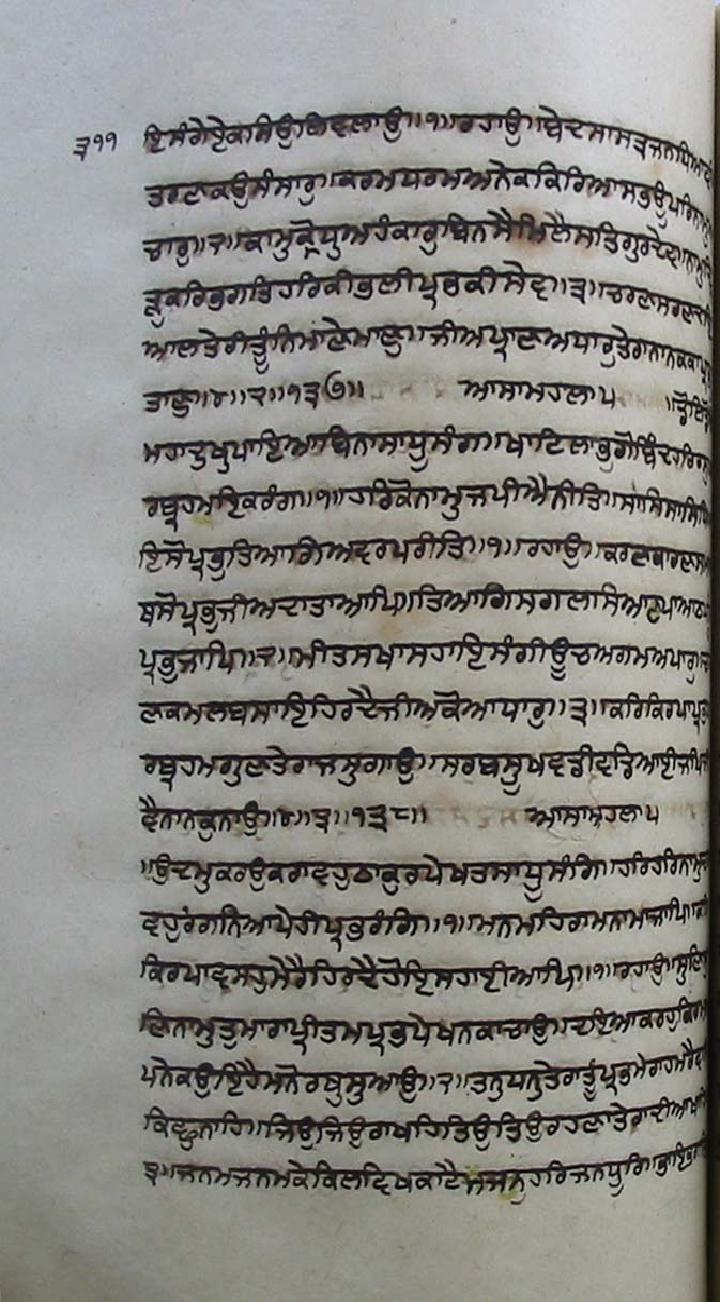 ੩੧੧ ਇਸੰਗੇਏਕਸਿਉਲਿਵਲਾਉ॥੧॥ਰਹਾਉ॥ਬੇਦਸਾਸਤ੍ਰਜਨਧਿਆਵ
ਤਰਣਕਉਸੰਸਾਰੁ॥ਕਰਮਧਰਮਅਨੇਕਕਿਰਿਆਸਭਊਪਰਿਨਾਮੁ
ਚਾਰੁ॥੨॥ਕਾਮੁਕ੍ਰੋਧੁਅਹੰਕਾਰੁਬਿਨਸੈਮਿਲੈਸਤਿਗੁਰਦੇਵ॥ਨਾਮੁ
ੜੁਕਰਿਭਗਤਿਹਰਿਕੀਭਲੀਪ੍ਰਭਕੀਸੇਵ॥੩॥ਚਰਣਸਰਣ
ਆਲਤੇਰੀਤੂੰਨਿਮਾਣੇਮਾਣੁ॥ਜੀਅਪ੍ਰਾਣਅਧਾਰੁਤੇਰਾਨਾਨਕਕਾਪ੍ਰ
ਤਾਣੁ॥੪॥੨॥੧੩੭॥ ਆਸਾਮਹਲਾ੫ ॥ਡੋਲਿਡੋ
ਮਹਾਦੁਖੁਪਾਇਆਬਿਨਾਸਾਧੂਸੰਗ॥ਖਾਟਿਲਾਭੁਗੋਬਿੰਦਹਰਿ
ਰਬ੍ਰਹਮਇਕਰੰਗ॥੧॥ਹਰਿਕੋਨਾਮੁਜਪੀਐਨੀਤਿ॥ਸਾਸਿਸਾਸਿ
ਇਸੋਪ੍ਰਭੁਤਿਆਗਿਅਵਰਪਰੀਤਿ॥੧॥ਰਹਾਉ॥ਕਰਣਕਾਰਣਸਮ
ਥਸੋਪ੍ਰਭੁਜੀਅਦਾਤਾਆਪਿ॥ਤਿਆਗਿਸਗਲਸਿਆਣਪਾਆਠ
ਪ੍ਰਭੁਜਾਪਿ॥੨॥ਮੀਤਸਖਾਸਹਾਇਸੰਗੀਊਚਅਗਮਅਪਾਰੁ॥ਚ
ਣਕਮਲਬਸਾਇਹਿਰਦੈਜੀਅਕੋਆਧਾਰੁ॥੩॥ਕਰਿਕਿਰਪਾਪ੍ਰਭ
ਰਬ੍ਰਹਮਗੁਣਤੇਰਾਜਸੁਗਾਉ॥ਸਰਬਸੂਖਵਡੀਵਡਿਆਈਜਪਿਜੀ
ਵੈਨਾਨਕੁਨਾਉ॥੪॥੩॥੧੩੮॥ ਆਸਾਮਹਲਾ੫
॥ਉਦਮੁਕਰਉਕਰਾਵਹੁਠਾਕੁਰਪੇਖਤਸਾਧੂਸੰਗਿ॥ਹਰਿਹਰਿਨਾਮੁ
ਵਹੁਰੰਗਨਿਆਪੇਹੀਪ੍ਰਭਰੰਗਿ॥੧॥ਮਨਮਹਿਰਾਮਨਾਮਾਜਾਪਿ॥ਕਰਿ
ਕਿਰਪਾਵਸਹੁਮੇਰੈਹਿਰਦੈਹੋਇਸਹਾਈਆਪਿ॥੧॥ਰਹਾਉ॥ਸੁਣਿ
ਣਿਨਾਮੁਤੁਮਾਰਾਪ੍ਰੀਤਮਪ੍ਰਭਪੇਖਨਕਾਚਾਉ॥ਦਇਆਕਰਹੁਕਿਰਮ
ਪਨੇਕਉਇਹੈਮਨੋਰਥੁਸੁਆਉ॥੨॥ਤਨੁਧਨੁਤੇਰਾਤੂੰਪ੍ਰਭੁਮੇਰਾਹਮਰੈਵ
ਕਿਛੁਨਾਹਿ॥ਜਿਉਜਿਉਰਾਖਹਿਤਿਉਤਿਉਰਹਣਾਤੇਰਾਦੀਆਖਾ
੩॥ਜਨਮਜਨਮਕੇਕਿਲਵਿਖਕਾਟੈਮਜਨੁਹਰਿਜਨਧੂਰਿ॥ਭਾਇਭ